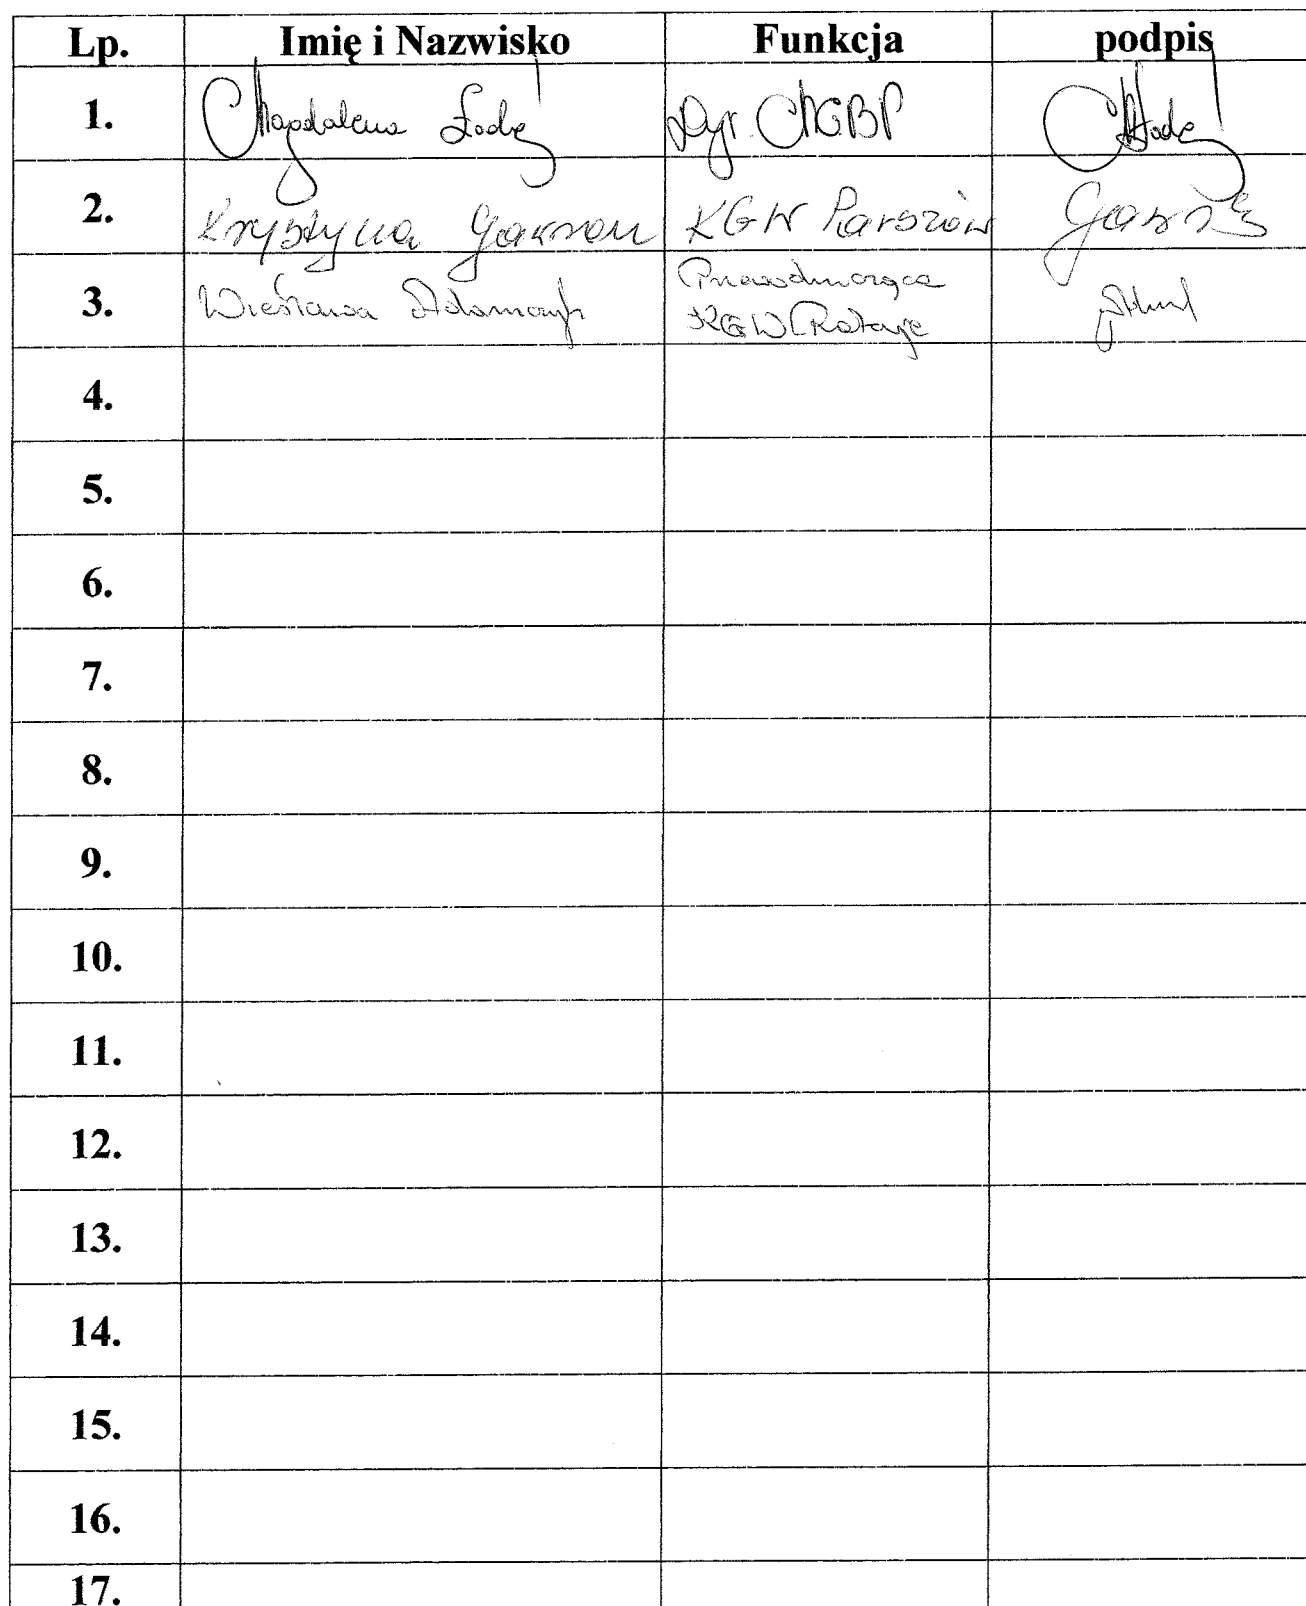 Lp. Imię i Nazwisko Funkcja podpis
1. Magdalena Dyr. MGBP
2. Krystyna KGW Parszów
3. Wiesława Adamczyk Przewodnicząca
KGW Rataje
4.
5.
6.
7.
8.
9.
10.
11.
12.
13.
14.
15.
16.
17.